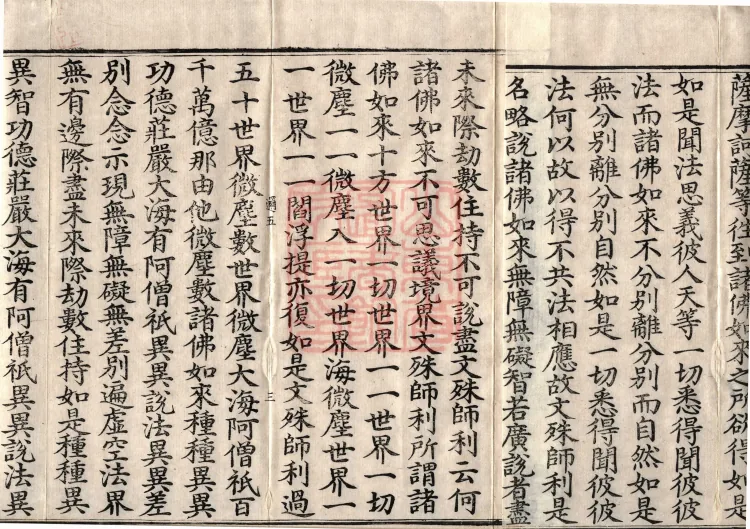 薩摩訶薩等往到諸佛如來之所欲得如是
如是聞法思義彼人天等一切悉得聞彼彼
法而諸佛如來不分別離分別而自然如是
無分別離分別自然如是一切悉得聞彼彼
法何以故以得不共法相應故文殊師利是
名略說諸佛如來無障無礙智若廣說者盡
未來際劫數住持不可說盡文殊師利云何
諸佛如來不可思議境界文殊師利所謂諸
佛如來十方世界一切世界一一世界一切
微塵一一微塵入一切世界海微塵世界一
一世界一一閻浮提亦復如是文殊師利過
五 三
五十世界微塵數世界微塵大海阿僧祇百
千萬億那由他微塵數諸佛如來種種異異
功德莊嚴大海有阿僧祇異異說法異異差
別念念示現無障無礙無差別遍虛空法界
無有邊際盡未來際劫數住持如是種種異
異智功德莊嚴大海有阿僧祇異異說法異